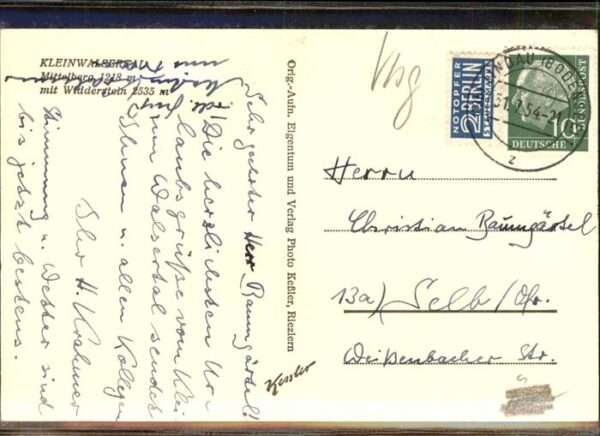 KLEINWALSERTAL
Mittelberg 1218 m
mit Widderstein 2535 m
Sehr geehrter Herr Baumgärtel!
Die herzlichsten Ur-
laubsgrüße vom Klei
nen Walsertal sendet
Ihnen u. allen Kollegen
Ihr H. Krahmer
Stimmung u. Wetter sind
bis jetzt bestens.
Orig.-Aufn. Eigentum und Verlag Photo Keßler, Riezlern
Kessler
NOTOPFER
2 BERLIN
STEUERMARKE
LINDAU (BODENSEE)
31.7.54-21
z
10
DEUTSCHE
BUNDESPOST
Herrn
Christian Baumgärtel
13a) Selb/Ofr.
Weißenbacher Str.